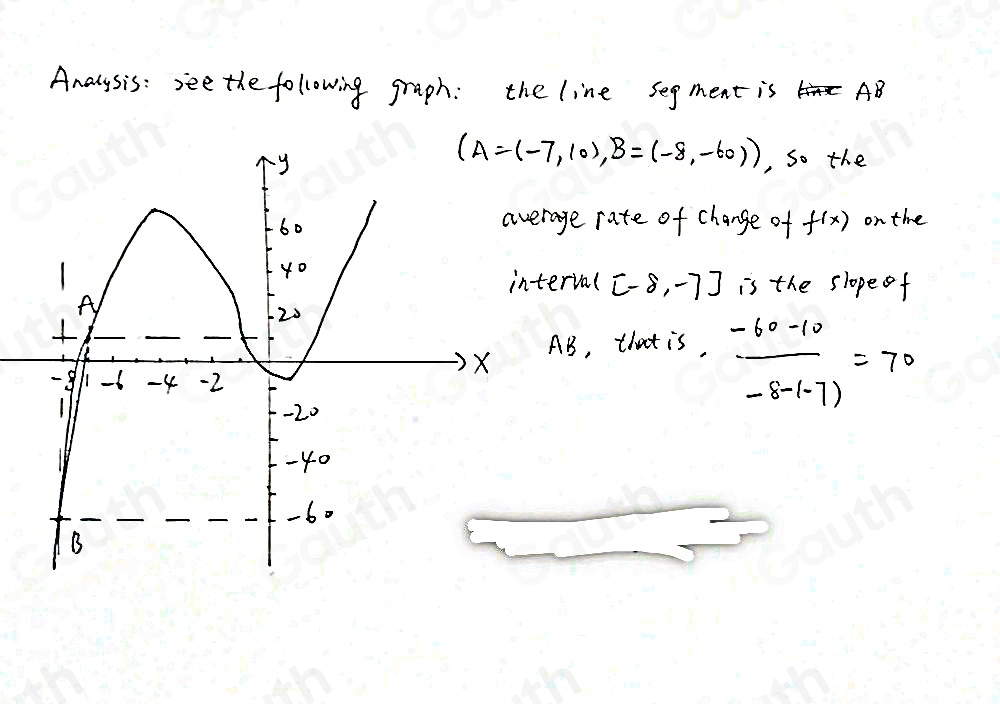 Analysis: see the following graph: the line segment is AB
(A=(-7,10),B=(-8,-60)), so the
average rate of change of f(x) on the
interval [-8,-7] is the slope of
AB, that is, -60-10
= 70
-8-(-7)
y
60
40
A
20
X
-8 -6 -4 -2
-20
-40
-60
B
Gauth